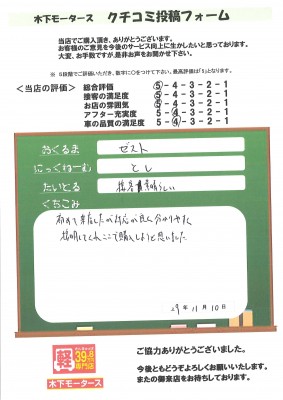 木下モータース　クチコミ投稿フォーム
当店でご購入頂き、ありがとうございます。
お客様のご意見を今後のサービス向上に生かしたいと思っております。
大変、お手数ですが、是非お声をお聞かせ下さい。
※ 5段階でご評価いただき、数字に○をつけて下さい。最高評価は「5」となります。
＜当店の評価＞
総合評価 5－4－3－2－1
接客の満足度 5－4－3－2－1
お店の雰囲気 5－4－3－2－1
アフター充実度 5－4－3－2－1
車の品質の満足度 5－4－3－2－1
おくるま ゼスト
にっくねーむ とし
たいとる 接客素晴らしい
くちこみ
初めて来店したが対応が良く分かりやすく
説明してくれここで購入しようと思いました
29年11月10日
軽
39.8
専門店
木下モータース
ご協力ありがとうございました。
今後ともどうぞよろしくお願いいたします。
またの御来店をお待ちしております。